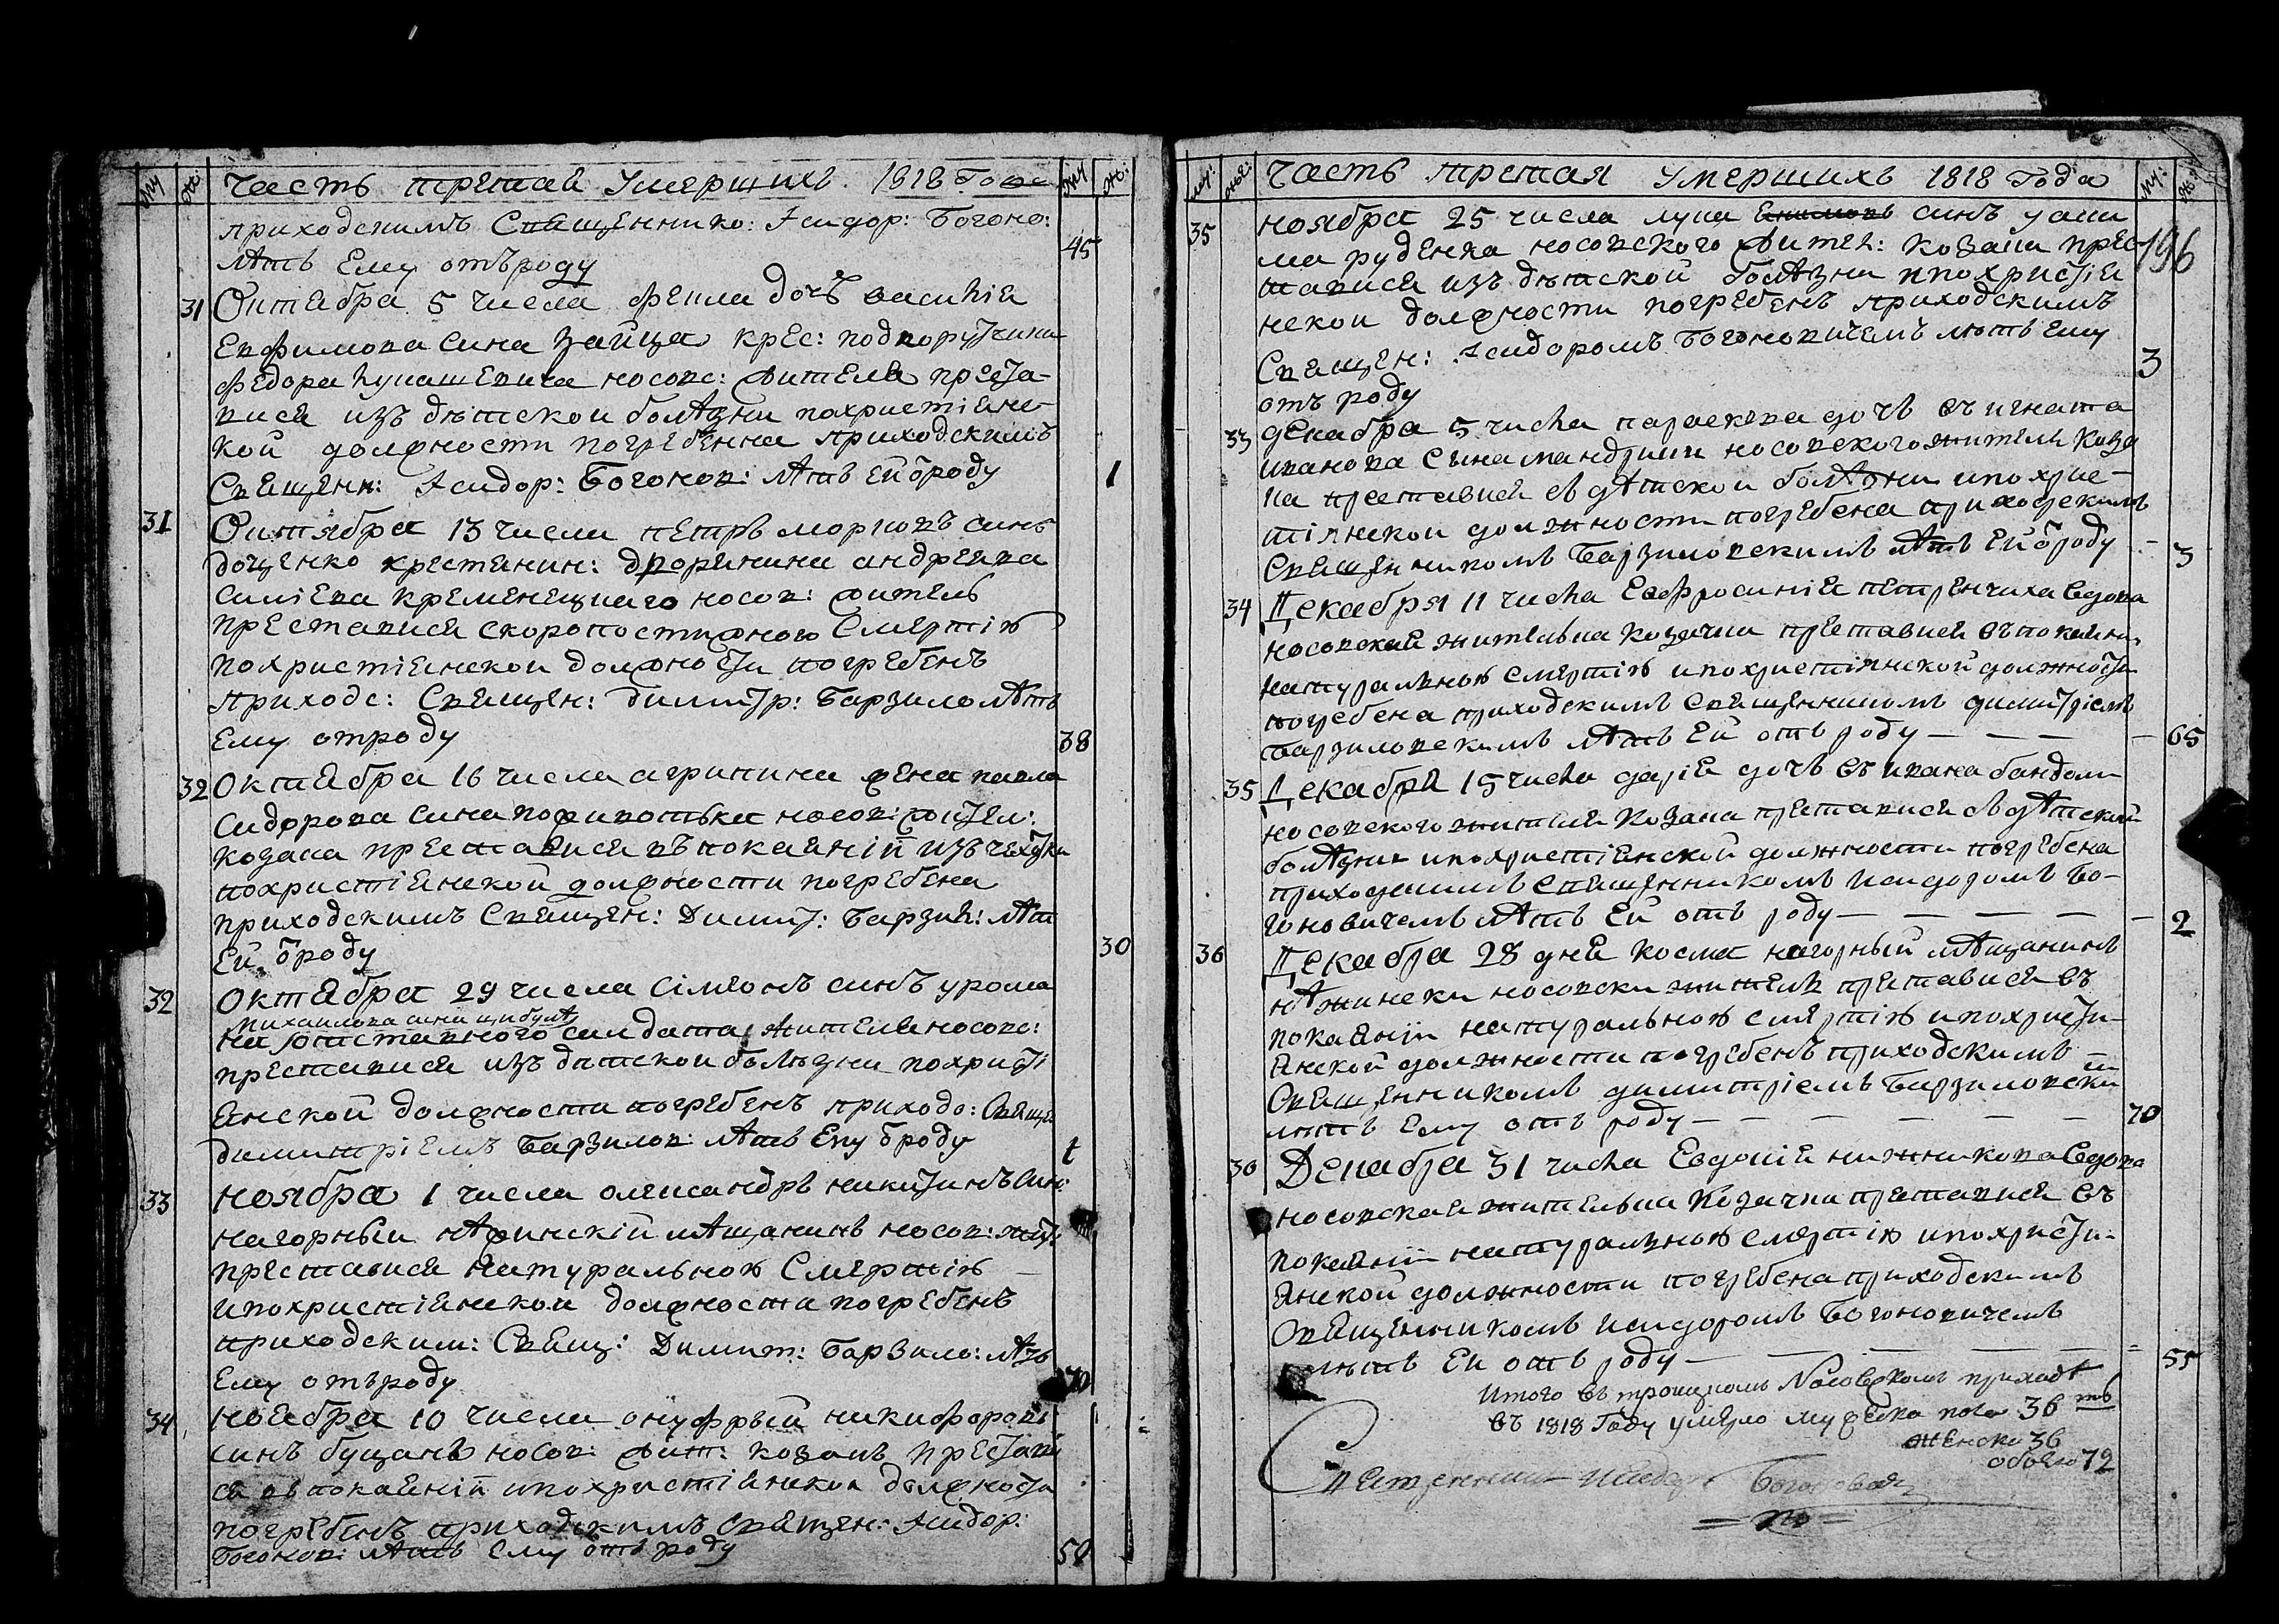 му
же:
Часть третая Умершихъ. 1818 Года
му
же:
приходскимъ Священнико: Исидор: Богоно:
лѣтъ Ему отъроду
45
31 Октября 5 числа Фекла дочъ василія
Евфимова сина Зайца крес: подпоручика
Федора лукашевича носовс: жителя преста-
вися изъ дѣтской болѣзни похристіянс-
кой должности погребенна приходскимъ
Священн: Исидор: Богонов: лѣтъ ей ѿроду
1
31 Октября 13 числа петръ марковъ синъ
доценко крестянин: дворянина андреева
Саміева кременецкаго носов: житель
преставися скоропостижною Смертію
похристіянской должности погребенъ
приходс: Священ: Димитр: Барзило лѣтъ
Ему отроду
38
32 Октября 16 числа агрипина жена павла
Сидорова сина носов: жител:
козака преставися въпокаяніи изъ
похристіянской должности погребена
приходскимъ Священ: Димит: Барзил: лѣт
Ей ѿроду
30
32 Октября 29 числа Сімеонъ синъ у рома
михаилова сина цибулѣ
на отставного салдата жителя носовс:
преставися изъ дѣтской болѣзни похристі
янской должности погребенъ приходс: Свяще
димитріемъ Барзилов: лѣтъ Ему ѿроду
1
33 Ноября 1 числа олександръ никитинъ Син:
нагорный нѣжинскій мѣщанинъ носов: жит:
преставися натуральною Смертію
ипохристіянской должности погребенъ
приходским: Свящ: Димит: Барзило: лѣтъ
Ему отъроду
70
34 Ноября 10 числа онуфрый никифоровъ
синъ буцанъ носов: жит: козакъ престави
ся въпокаяніи ипохристіянской должности
погребенъ приходскимъ Священ: Исидор:
Богонов: лѣтъ Ему отъ роду
50
му:
же:
Часть третая умершихъ 1818 Года
му:
же:
196
35 Ноября 25 числа лука синъ у аки
ма руденка носовского жител: козака прес
тавися изъ дѣтской болѣзни ипохристія
нской должности погребенъ приходскимъ
Священ: Исидоромъ Богоновичемъ лѣтъ ему
отъ роду
3
33 декабря 5 числа параскева дочъ въ игната
иванова сына мандрики носовского жителя коза
ка преставися въ дѣтской болѣзни ипохрис-
тіянской должности погребена приходскимъ
Священникомъ Барзиловскимъ лѣтъ Ей ѿроду
3
34 Декабря 11 числа Евфросинія петренчиха вдова
носовская жителька козачка преставися въпокаяни
натуральною смертію ипохристіянской должности
погребена приходскимъ священникомъ димитріемъ
барзиловскимъ лѣтъ Ей отъ роду — — —
65
35 Декабря 15 числа дарія дочъ въ ивана бандоли
носовского жителя козака преставися въ дѣтской
болѣзни ипохристіянской должности погребена
приходскимъ священникомъ исидоромъ Бо-
гоновичемъ лѣтъ Ей отъ роду — — — —
2
36 Декабря 28 дня косма нагорный мѣщанинъ
нѣжински носовски житель преставися въ
покаяніи натуральною смертію ипохристи-
янской должности погребенъ приходскимъ
Священникомъ димитріемъ Барзиловски
лѣтъ Ему отъ роду — — — — —
70
36 Декабря 31 числа Евдокія нижникова вдова
носовская жителька козачка преставися въ
покаяніи натуральною смертію ипохристи-
янской должности погребена приходскимъ
Священникомъ исидоромъ Богоновичемъ
лѣтъ Ей отъ роду — — — —
55
Итого въ троицкомъ Носовскомъ приходѣ
въ 1818 Году умерло мужеска пола 36 ть
женска 36
обоего 72
Священникъ Исидоръ Богонович